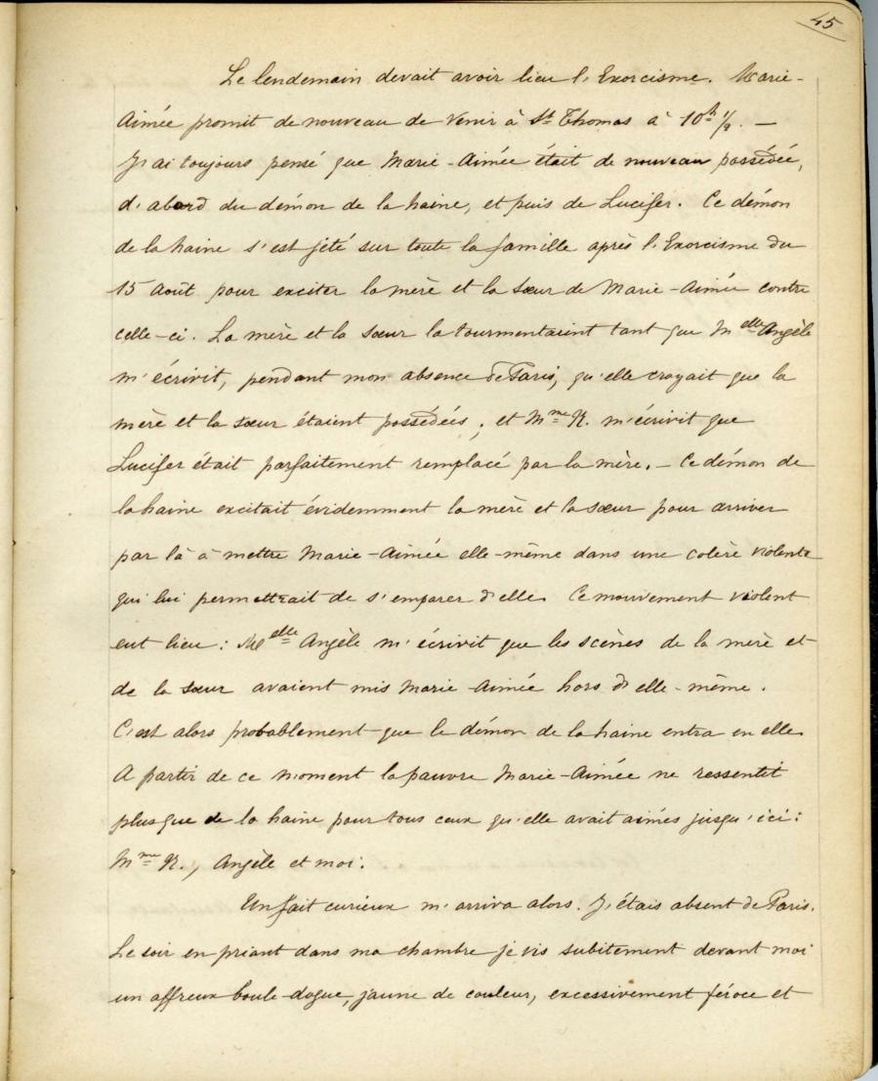 45
Le lendemain devait avoir lieu l'Exorcisme. Marie-
Aimée promit de nouveau de venir à St Thomas à 10h 1/2. —
J'ai toujours pensé que Marie-Aimée était de nouveau possédée,
d'abord du démon de la haine, et puis de Lucifer. Ce démon
de la haine s'est jété sur toute la famille après l'Exorcisme du
15 Août pour exciter la mère et la sœur de Marie-Aimée contre
celle-ci. La mère et la sœur la tourmentaient tant que Melle Angèle
m'écrivit, pendant mon absence de Paris, qu'elle croyait que la
mère et la sœur étaient possédées ; et Mme R. m'écrivit que
Lucifer était parfaitement remplacé par la mère. — Ce démon de
la haine excitait évidemment la mère et la sœur pour arriver
par là à mettre Marie-Aimée elle-même dans une colère violente
qui lui permettrait de s'emparer d'elle. Ce mouvement violent
eut lieu : Melle Angèle m'écrivit que les scènes de la mère et
de la sœur avaient mis Marie Aimée hors d'elle-même.
C'est alors probablement que le démon de la haine entra en elle.
A partir de ce moment la pauvre Marie-Aimée ne ressentit
plus que de la haine pour tous ceux qu'elle avait aimés jusqu'ici :
Mme R., Angèle et moi.
Un fait curieux m'arriva alors. J'étais absent de Paris.
Le soir en priant dans ma chambre je vis subitement devant moi
un affreux boule-dogue, jaune de couleur, excessivement féroce et